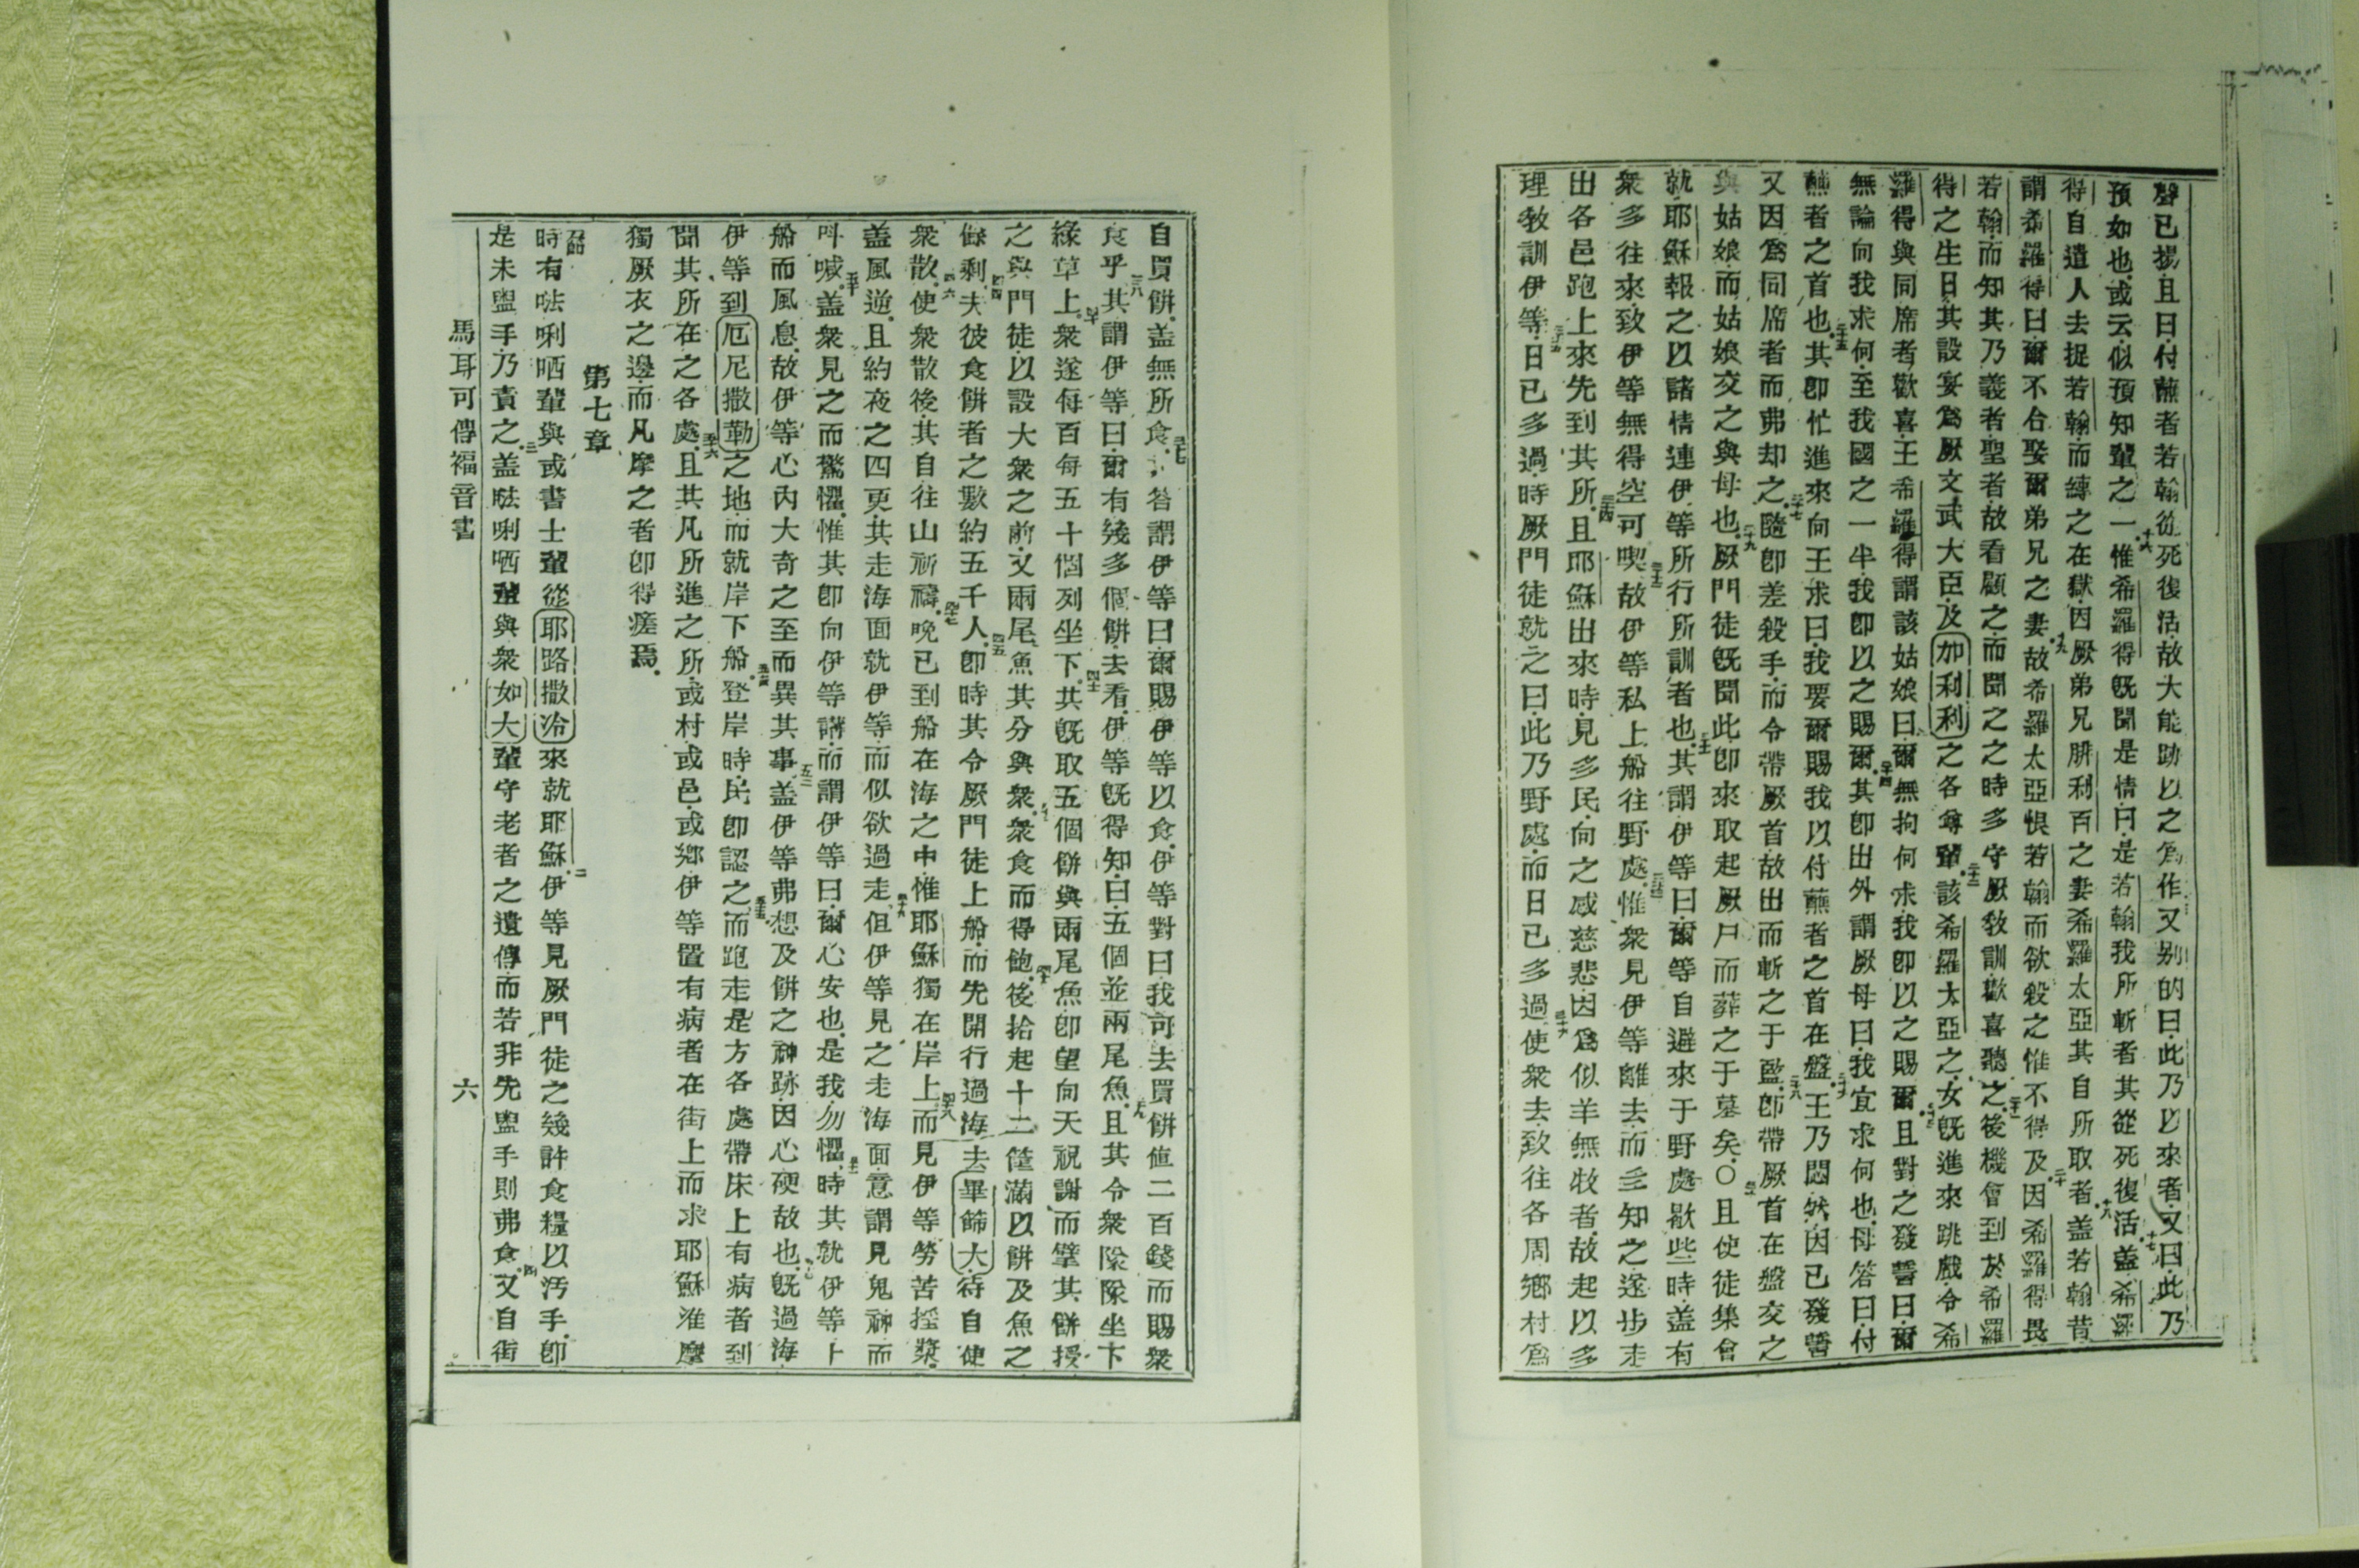 聲已揚且曰付蘸者若翰從死復活故大能跡以之爲作又別的曰此乃以來者又曰此乃
預如也或云似預知輩之一惟希羅得既聞是情曰是若翰我所斬者其從死復活蓋希羅
得自遣人去捉若翰而縛之在獄因厥弟兄腓利百之妻希羅太亞其自所取者蓋若翰昔
謂希羅得曰爾不合娶爾弟兄之妻故希羅太亞恨若翰而欲殺之惟不得及因希羅得畏
若翰而知其乃義者聖者故看顧之而聞之之時多守厥教訓歡喜聽之後機會到於希羅
得之生日其設宴爲厥文武大臣及加利利之各尊輩該希羅太亞之女既進來跳戲令希
羅得與同席者歡喜王希羅得謂該姑娘曰爾無拘何求我卽以之賜爾且對之發誓曰爾
無論向我求何至我國之一半我卽以之賜爾其卽出外謂厥母曰我宜求何也母答曰付
蘸者之首也其卽忙進來向王求曰我要爾賜我以付蘸者之首在盤王乃悶然因已發誓
又因爲同席者而弗却之隨卽差殺手而令帶厥首故出而斬之于監卽帶厥首在盤交之
與姑娘而姑娘交之與母也厥門徒既聞此卽來取起厥尸而葬之于墓矣〇且使徒集會
就耶穌報之以諸情連伊等所行所訓者也其謂伊等曰爾等自避來于野處歇些時蓋有
衆多往來致伊等無得空可喫故伊等私上船往野處惟衆見伊等離去而多知之遂步走
出各邑跑上來先到其所且耶穌出來時見多民向之感慈悲因爲似羊無牧者故起以多
理教訓伊等日已多過時厥門徒就之曰此乃野處而日已多過使衆去致往各周鄉村爲
自買餅蓋無所食答謂伊等曰爾賜伊等以食伊等對曰我可去買餅值二百錢而賜衆
食乎其謂伊等曰爾有幾多個餅去看伊等既得知曰五個並兩尾魚且其令衆隊隊坐下
綠草上衆遂每百每五十個列坐下其既取五個餅與兩尾魚卽望向天祝謝而擘其餅授
之與門徒以設大衆之前又兩尾魚其分與衆衆食而得飽後拾起十二筐滿以餅及魚之
餘剩夫彼食餅者之數約五千人卽時其令厥門徒上船而先開行過海去畢篩大待自使
衆散使衆散後其自往山祈禱晚已到船在海之中惟耶穌獨在岸上而見伊等勞苦搖槳
蓋風逆且約夜之四更其走海面就伊等而似欲過走但伊等見之走海面意謂見鬼神而
呌喊蓋衆見之而驚懼惟其卽向伊等講而謂伊等曰爾心安也是我勿懼時其就伊等上
船而風息故伊等心內大奇之至而異其事蓋伊等弗想及餅之神跡因心硬故也既過海
伊等到厄尼撒勒之地而就岸下船登岸時民卽認之而跑走是方各處帶床上有病者到
聞其所在之各處且其凡所進之所或村或邑或鄉伊等置有病者在街上而求耶穌准摩
獨厥衣之邊而凡摩之者卽得瘥焉
第七章
時有㕹唎哂輩與或書士輩從耶路撒冷來就耶穌伊等見厥門徒之幾許食糧以污手卽
是未盥手乃責之蓋㕹唎哂輩與衆如大輩守老者之遺傳而若非先盥手則弗食又自街
馬耳可傳福音書 六